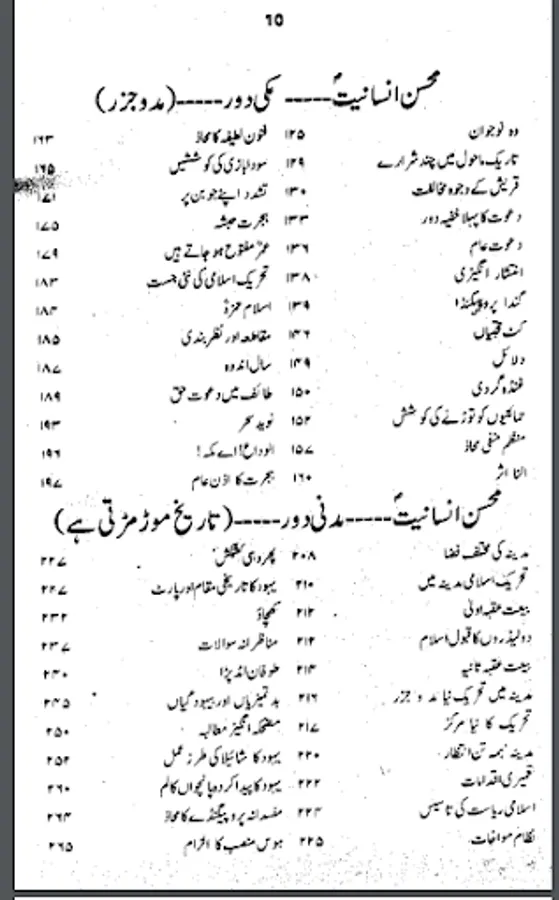 10
محسن انسانیتؐ ----- مکی دور ----- (مد و جزر)
وہ نوجوان ۱۲۵
تاریک ماحول میں چند شرارے ۱۲۹
قریش کے وجوہ مخالفت ۱۳۰
دعوت کا پہلا خفیہ دور ۱۳۳
دعوت عام ۱۳۶
انتشار انگیزی ۱۳۸
گندا پروپیگنڈا ۱۳۹
کٹ حجتیاں ۱۴۶
دلائل ۱۴۹
غنڈہ گردی ۱۵۰
حمائتیوں کو توڑنے کی کوشش ۱۵۴
منظم منفی محاذ ۱۵۷
الٹا اثر ۱۶۰
فنون لطیفہ کا محاذ ۱۶۳
سودابازی کی کوششیں ۱۶۵
تشدد اپنے جوبن پر ۱۷۱
ہجرت حبشہ ۱۷۵
عمرؓ مفتوح ہو جاتے ہیں ۱۷۹
تحریک اسلامی کی نئی جست ۱۸۳
اسلام حمزہؓ ۱۸۴
مقاطعہ اور نظر بندی ۱۸۵
سال اندوہ ۱۸۷
طائف میں دعوت حق ۱۸۹
نوید سحر ۱۹۳
الوداع! اے مکہ! ۱۹۶
ہجرت کا اذن عام ۱۹۷
محسن انسانیتؐ ----- مدنی دور ----- (تاریخ موڑ مڑتی ہے)
مدینہ کی مختلف فضا ۲۰۸
تحریک اسلامی مدینہ میں ۲۱۰
بیعت عقبہ اولیٰ ۲۱۲
دو لیڈروں کا قبول اسلام ۲۱۲
بیعت عقبہ ثانیہ ۲۱۴
مدینہ میں تحریک نیا مد و جزر ۲۱۶
تحریک کا نیا مرکز ۲۱۷
مدینہ ہمہ تن انتظار ۲۲۰
تعمیری اقدامات ۲۲۲
اسلامی ریاست کی تاسیس ۲۲۴
نظام مواخات ۲۲۵
پھر وہی کشمکش ۲۲۷
یہود کا تاریخی مقام اور پارٹ ۲۲۷
کھچاؤ ۲۳۲
مناظرانہ سوالات ۲۳۷
طوفان اُمڈ پڑا ۲۴۰
بدتمیزیاں اور بیہودگیاں ۲۴۵
مضحکہ انگیز مطالبہ ۲۵۰
یہود کا شائیلا کی طرز عمل ۲۵۲
یہود کا پیدا کردہ پانچواں کالم ۲۶۰
مفسدانہ پروپیگنڈے کا محاذ ۲۶۳
ہوس منصب کا الزام ۲۶۵